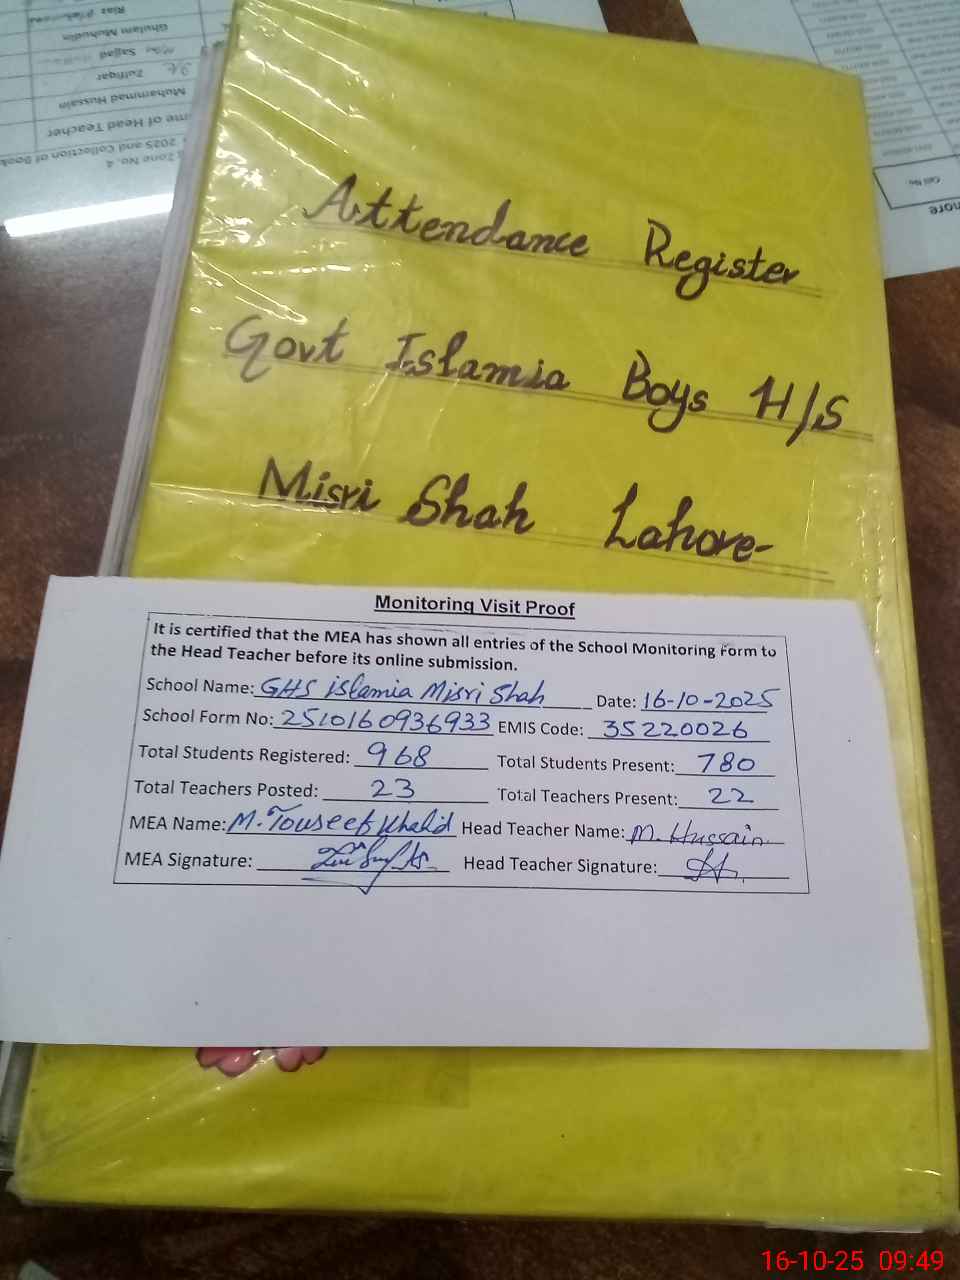 Riaz
Ghulam Muhudin
Sajjad
Zulfiqar
Muhammad Hussain
me of Head Teacher
2025 and Collection of Book
Zone No. 4
Cell No.
Attendance Register
Govt Islamia Boys H/S
Misri Shah Lahore-
Monitoring Visit Proof
It is certified that the MEA has shown all entries of the School Monitoring Form to
the Head Teacher before its online submission.
School Name: GHS islamia Misri Shah Date: 16-10-2025
School Form No: 2510160936933 EMIS Code: 35220026
Total Students Registered: 968 Total Students Present: 780
Total Teachers Posted: 23 Total Teachers Present: 22
MEA Name: M. Touseef Khalid Head Teacher Name: M. Hussain
MEA Signature: Head Teacher Signature:
16-10-25 09:49